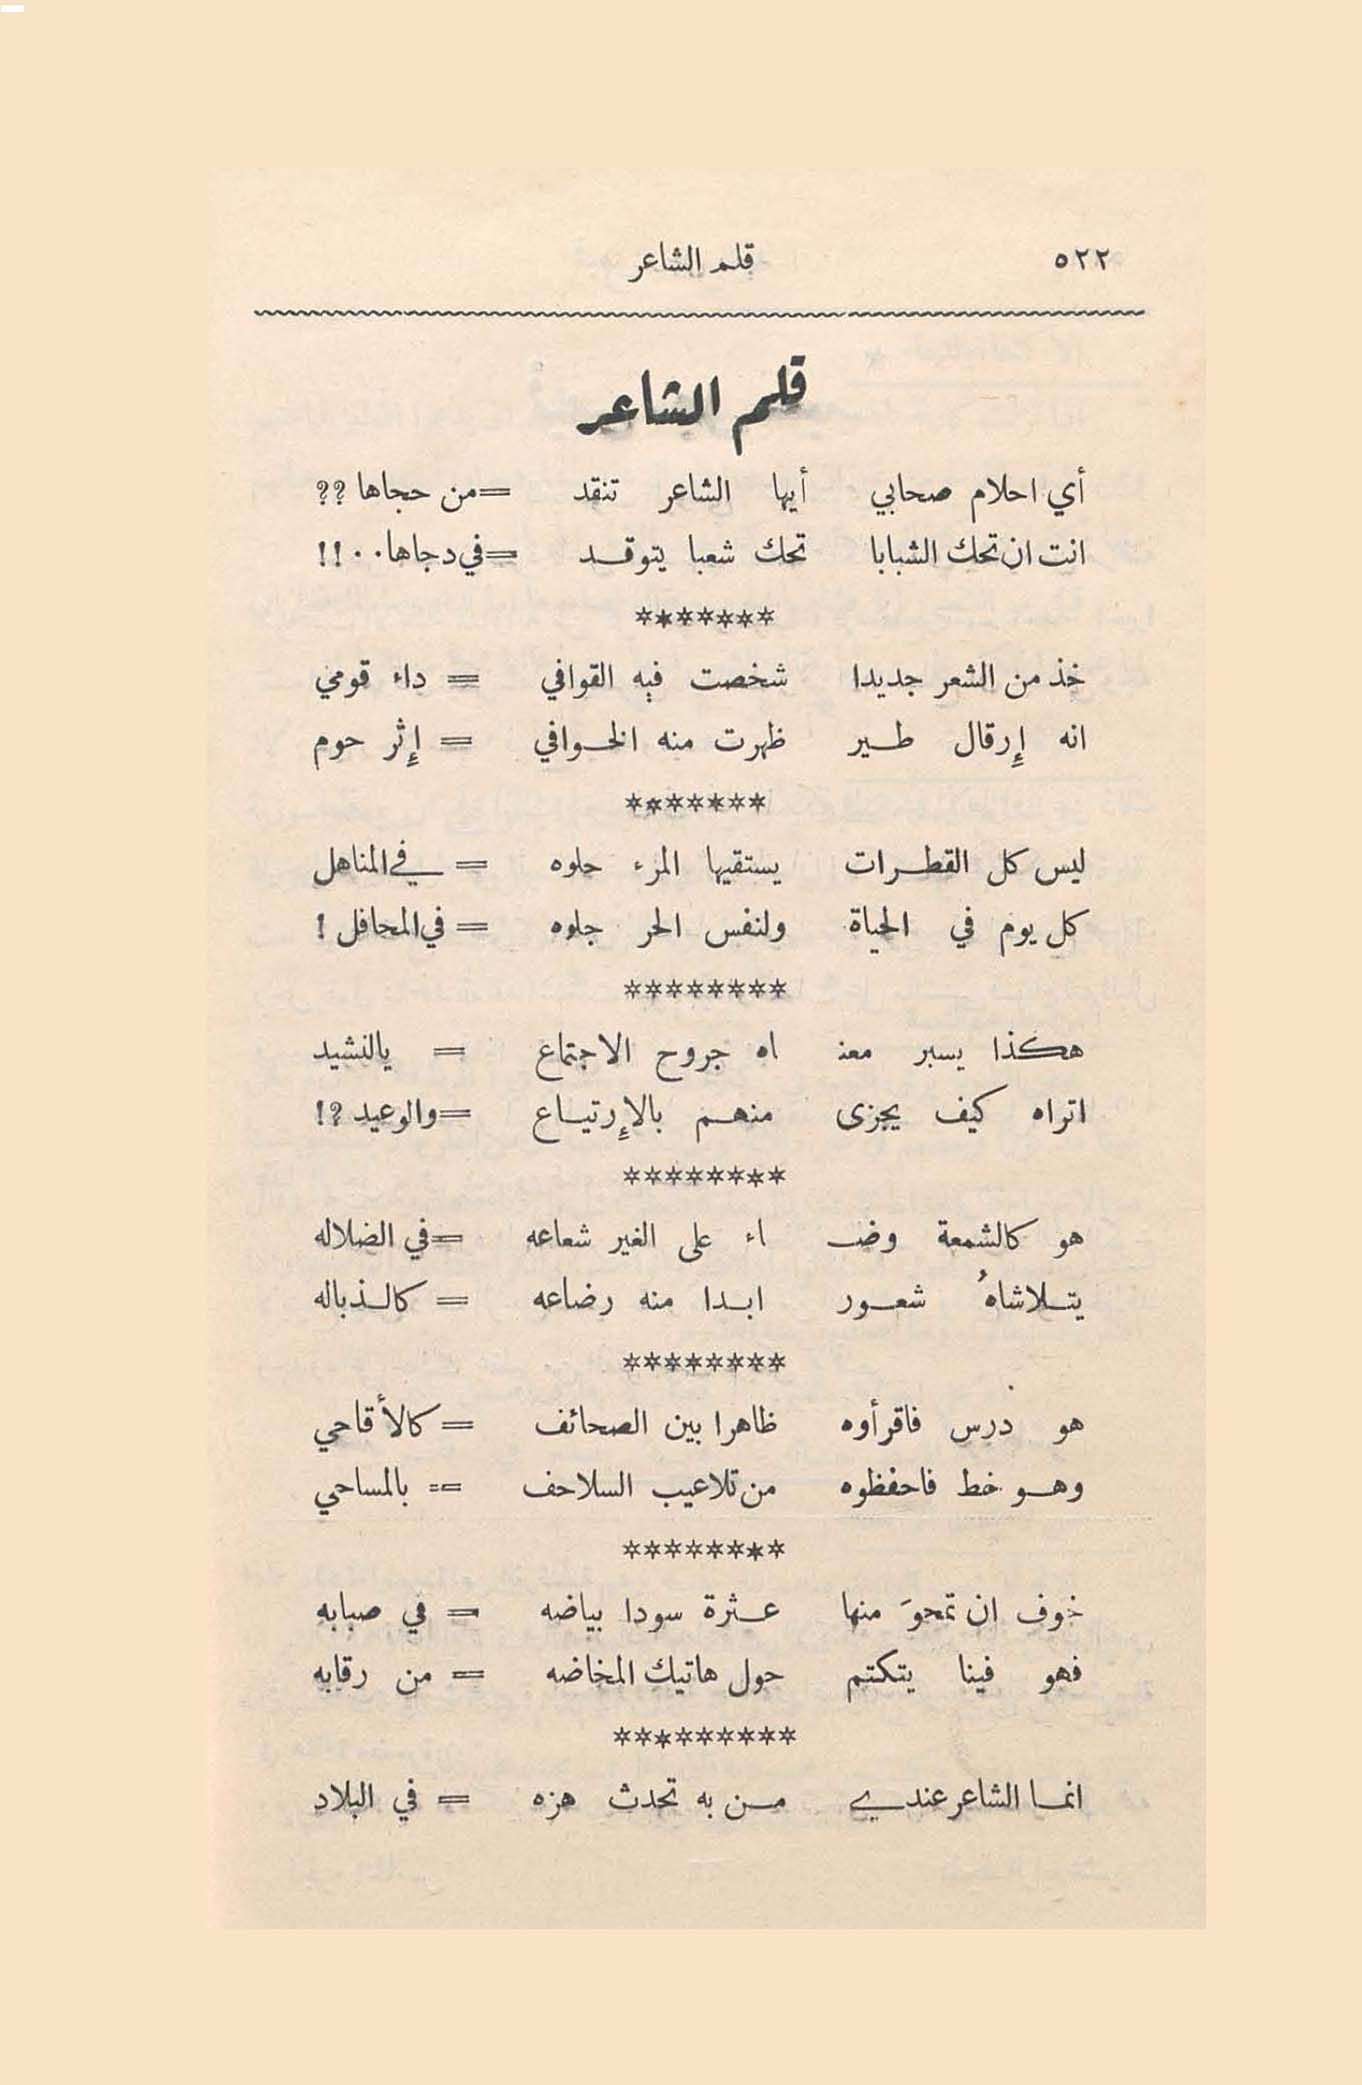 ٥٢٢ قلم الشاعر
قلم الشاعر
أي احلام صحابي أيها الشاعر تنقد =من حجاها ؟؟
انت ان تحك الشبابا تحك شعبا يتوقد =في دجاها..!!
*******
خذ من الشعر جديدا شخصت فيه القوافي = داء قومي
انه إرقال طير ظهرت منه الخوافي = إثر حوم
*******
ليس كل القطرات يستقيها المرء حلوه = في المناهل
كل يوم في الحياة ولنفس الحر جلوه = في المحافل !
********
هكذا يسبر معنـ اه جروح الاجتماع = يالنشيد
اتراه كيف يجزى منهم بالإرتياع =والوعيد ؟!
********
هو كالشمعة وضـ اء على الغير شعاعه =في الضلاله
يتلاشاهُ شعور ابدا منه رضاعه = كالذباله
********
هو درس فاقرأوه ظاهرا بين الصحائف = كالأقاحي
وهو خط فاحفظوه من تلاعيب السلاحف == بالمساحي
********
خوف ان تمحوَ منها عثرة سودا بياضه = في صبابه
فهو فينا يتكتم حول هاتيك المخاضه = من رقابه
*********
انما الشاعر عندي من به تحدث هزه = في البلاد